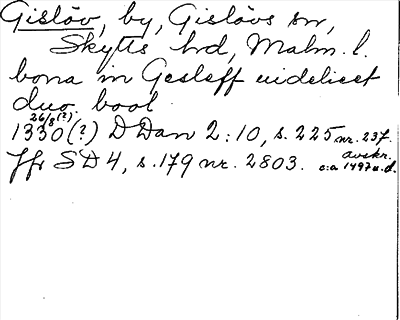 Gislöv, by, Gislövs sn,
Skytts hd, Malm. l.
bona in Gesleff uidelicet
duo bool
26/8 (?)
1330 (?) DDan 2:10, s. 225 nr. 237.
avskr.
Jfr SD 4, s. 179 nr. 2803. c:a 1497 u.d.